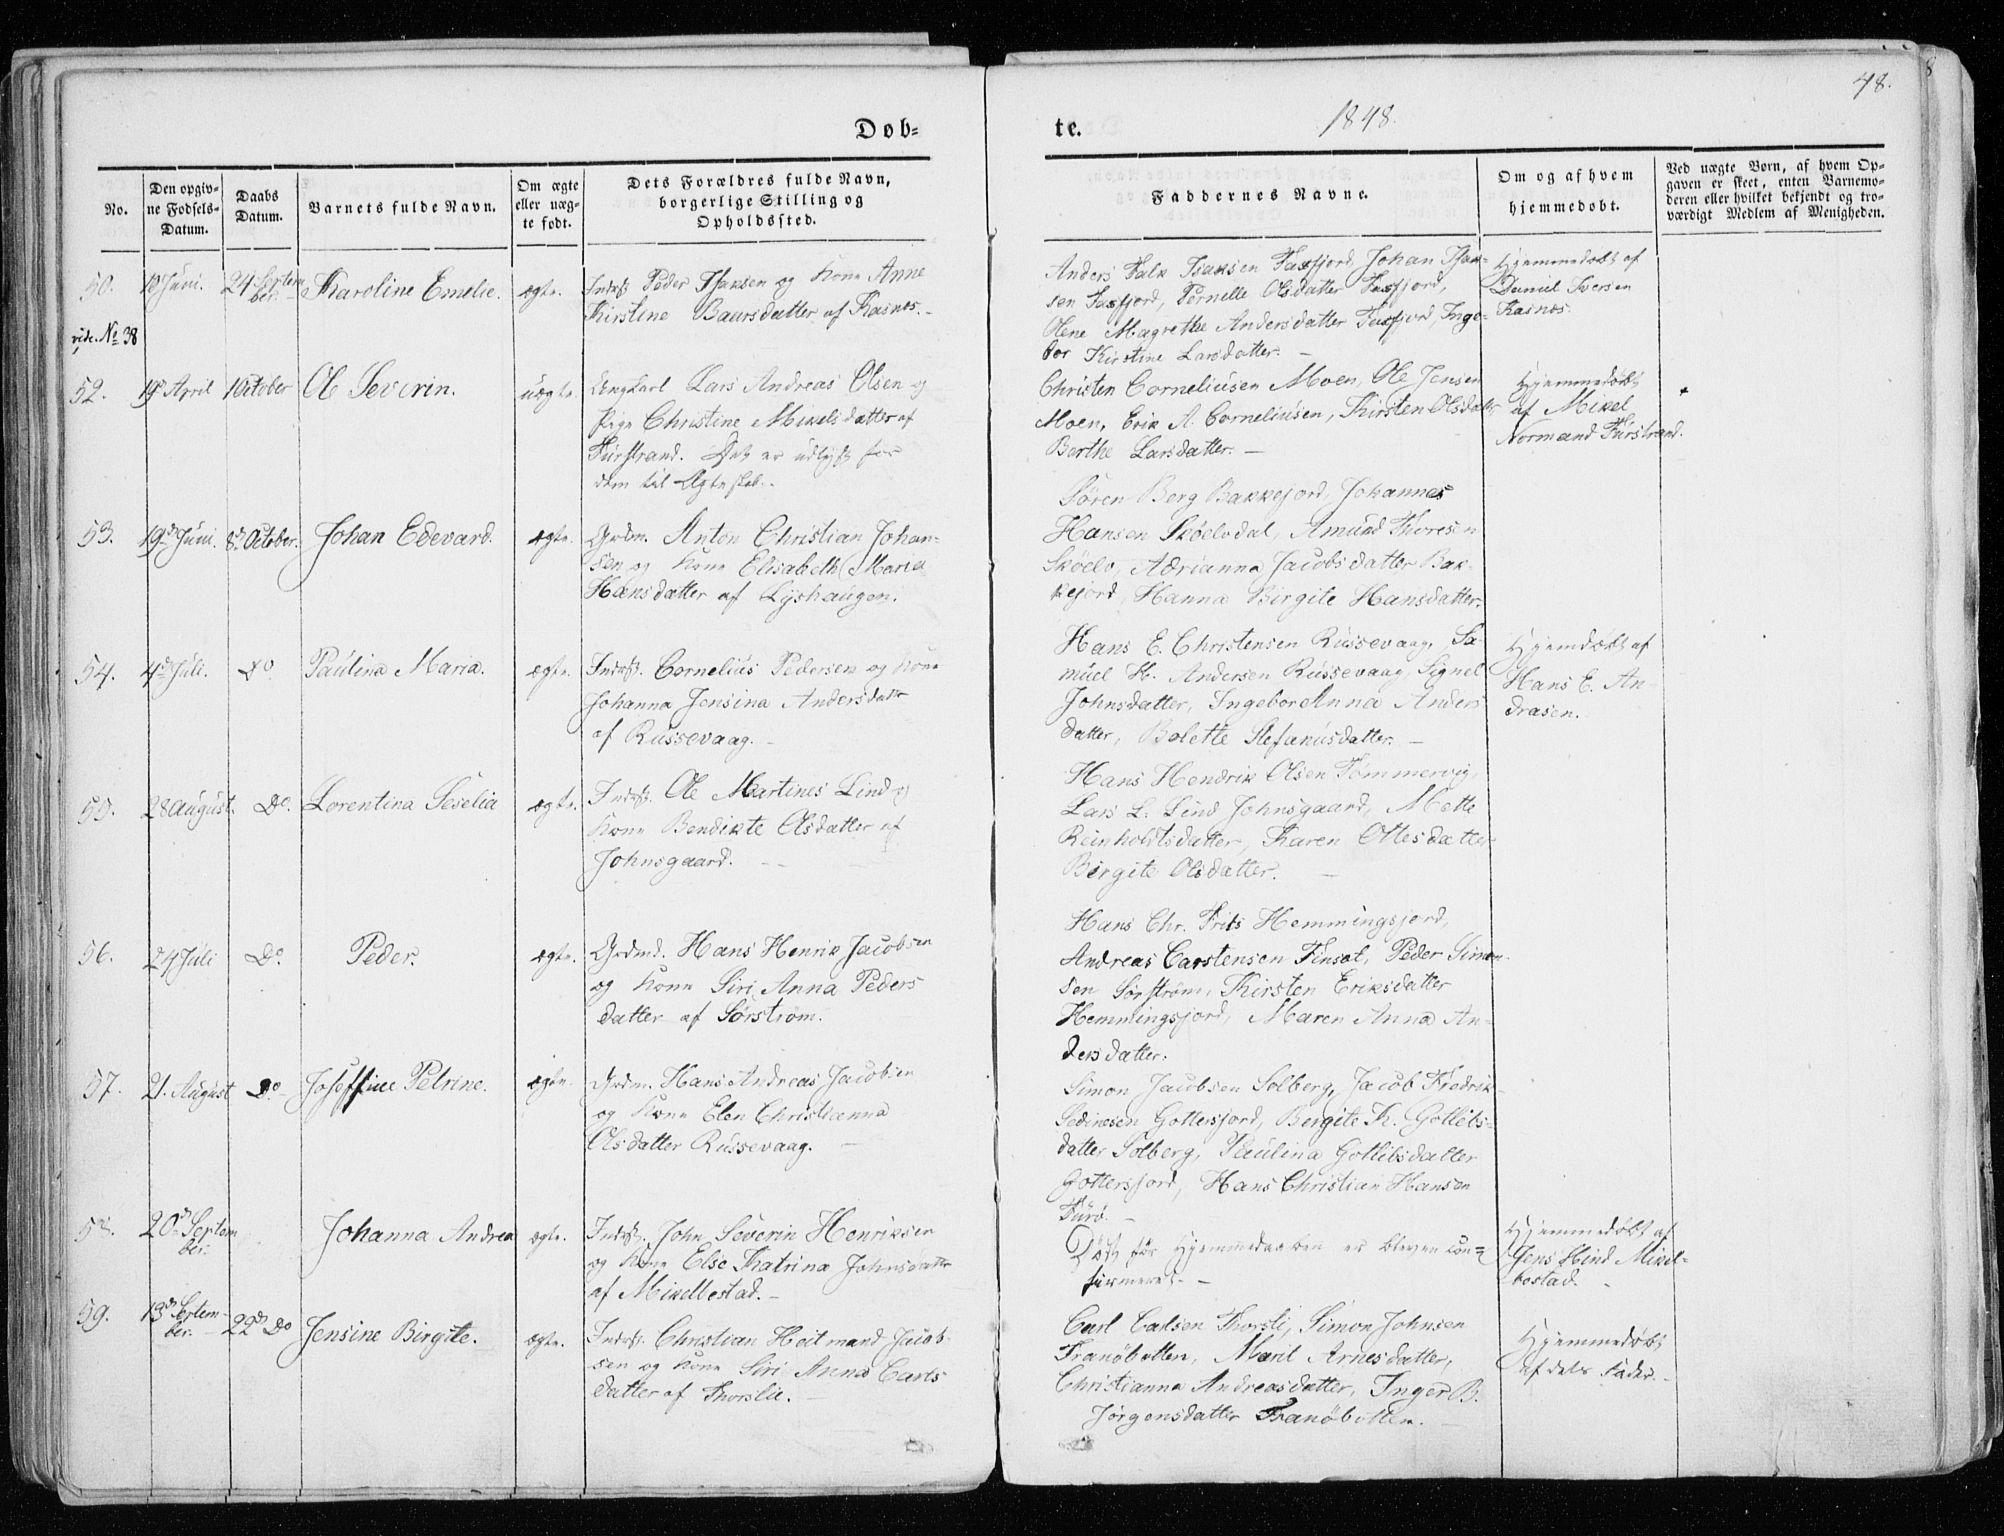 48.
Døb-
te.
1848.
No.
Den opgiv-
ne Fødsels-
Datum.
Daabs
Datum.
Barnets fulde Navn.
Om ægte
eller uæg-
te født.
Dets Forældres fulde Navn,
borgerlige Stilling og
Opholdssted.
Faddernes Navne.
Om og af hvem
hjemmedøbt.
Ved uægte Børn, af hvem Op-
gaven er skeet, enten Barnemo-
deren eller hvilket bekjendt og tro-
værdigt Medlem af Menigheden.
50.
vide. No 38
Juni.
24 Septem
ber.
Karoline Emelie.
ægte.
Inderst Peder Isaksen og Kone Anne
Kirstine Baarsdatter af Kasnes.
Anders Falk Isaksen Faxfjord, Johan Isak-
sen Faxfjord, Pernelle Olsdatter Faxfjord,
Olene Magrethe Andersdatter Faxfjord, Inge-
bor Kirstine Larsdatter. –
Hjemmedøbt af
Daniel Iversen
Kasnes.
52.
19d April
1 October
Ole Severin.
uægte.
Ungkarl Lars Andreas Olsen og
Pige Christine Mikelsdatter af
Fürstrand. Det er udlyst for
dem til Ægteskab.
Christen Corneliusen Moen, Ole Jensen
Moen, Erik A. Corneliusen, Kirsten Olsdatter
Berthe Larsdatter. –
Hjemmedøbt
af Mikel
Normand Fürstrand.
53.
19d Juni.
8d October.
Johan Edevard.
ægte.
Grdm. Anton Christian Johan-
sen og Kone Elisabeth Maria
Hansdatter af Lyshaugen.
Søren Berg Bakkejord, Johannes
Hansen Skóelvdal, Amund Thoresen
Skóelv, Adrianna Jacobsdatter Bak-
kejord, Hanna Birgite Hansdatter.
54.
4d Juli.
Do.
Paulina Maria.
ægte.
Inderst. Cornelius Pedersen og Kone
Johanna Jensina Andersdatr
af Russevaag. –
Hans E. Christensen Russevaag, Sa-
muel H. Andersen Russevaag, Signel
Johnsdatter, IngeborAnna Anders
datter, Bolette Stefanusdatter. –
Hjemdøbt af
Hans E. An-
drasen.
55.
28 August.
Do.
Lorentina Seselia
ægte.
Inderst. Ole Martines Lind og
Kone Bendikte Olsdatter af
Johnsgaard. –
Hans Hendrik Olsen Tömmervig,
Lars L. Lind Johnsgaard, Mette
Reinholdtsdatter, Karen Ottesdatter
Birgite Olsdatter. –
56.
24 Juli
Do.
Peder.
ægte.
Grdmd. Hans Henrik Jacobsen
og Kone Siri Anna Peders
datter af Sörstrøm.
Hans Chr. Frits Hemmingsjord,
Andreas Carstensen Finset, Peder Simon-
sen Sörstrøm, Kirsten Eriksdatter
Hemmingsjord, Maren Anna An-
dersdatter.
57.
21. August
Do
Joseffine Petrine.
ægte.
Grdm. Hans Andreas Jacobsen
og Kone Elen Christianna
Olsdatter Russevaag. –
Simon Jacobsen Solberg, Jacob Fredrik-
Sedinesen Gottersjord, Bergite K. Gotlibs-
datter Solberg, Paulina Gotlibsdatter
Gottersjord, Hans Christian Hansen
Fürö. –
58.
20d Septem
ber.
Johanna Andrea
ægte.
Inderst. John Severin Henriksen
og Kone Else Katrina Johnsdatter
af Mikelbostad. –
Död för Hjemmedaaben er bleven con-
firmeret. –
Hjemmedøbt af
Jens Hind Mikel-
bostad. –
59.
13d Septem-
ber.
22d Do
Jensine Birgite.
ægte.
Inderst. Christian Heitmand Jacob-
sen og Kone Siri Anna Carls
datter af Thorslie. –
Carl Carlsen Thorsli, Simon Johnsen
Tranöbotten, Marit Arnesdatter,
Christianna Andreasdatter, Inger B.
Jörgensdatter Tranöbotten. –
Hjemmedøbt
af dets Fader. –